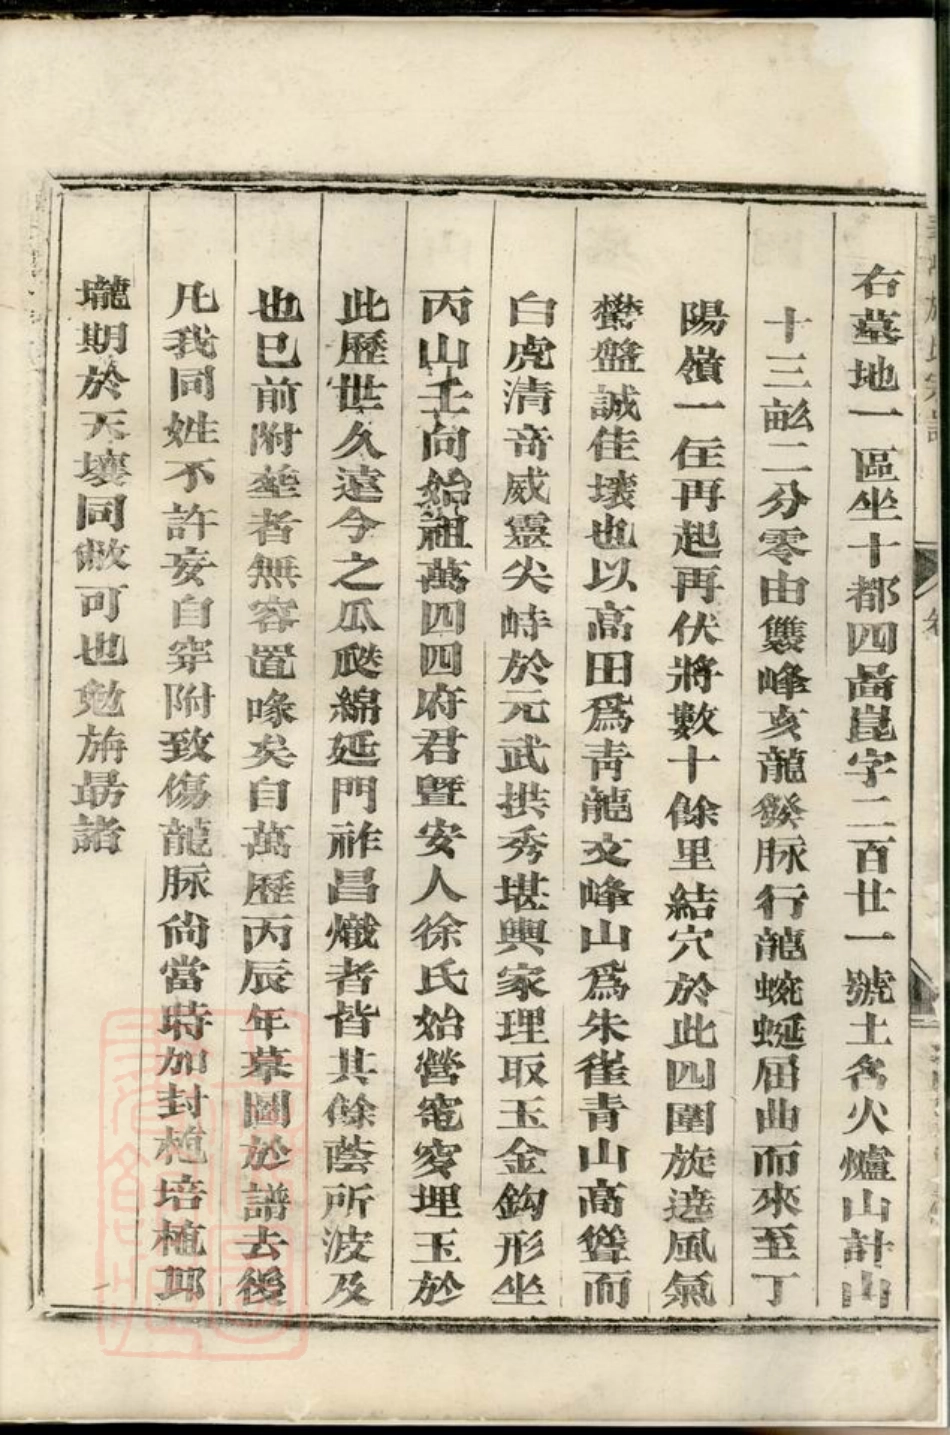 右墓地一區坐十都四啚崑字二百廿一號土名火爐山計山
十三畝二分零由雙峰亥龍發脉行龍蜿蜒屈曲而來至丁
陽嶺一住再起再伏將數十餘里結穴於此四圍旋遶風氣
欝盤誠佳壤也以高田爲靑龍文峰山爲朱雀青山高聳而
白虎清奇威靈尖峙於元武拱秀堪輿家理取玉金鈎形坐
丙山壬向始祖萬四四府君暨安人徐氏始營窀穸埋玉於
此歷世久遠今之瓜瓞綿延門祚昌熾者皆其餘蔭所波及
也已前附塟者無容置喙矣自萬歷丙辰年墓圖於譜去後
凡我同姓不許妄自穿附致傷龍脉尚當時加封植培植邱
壠期於天壤同敝可也勉旃勗諸